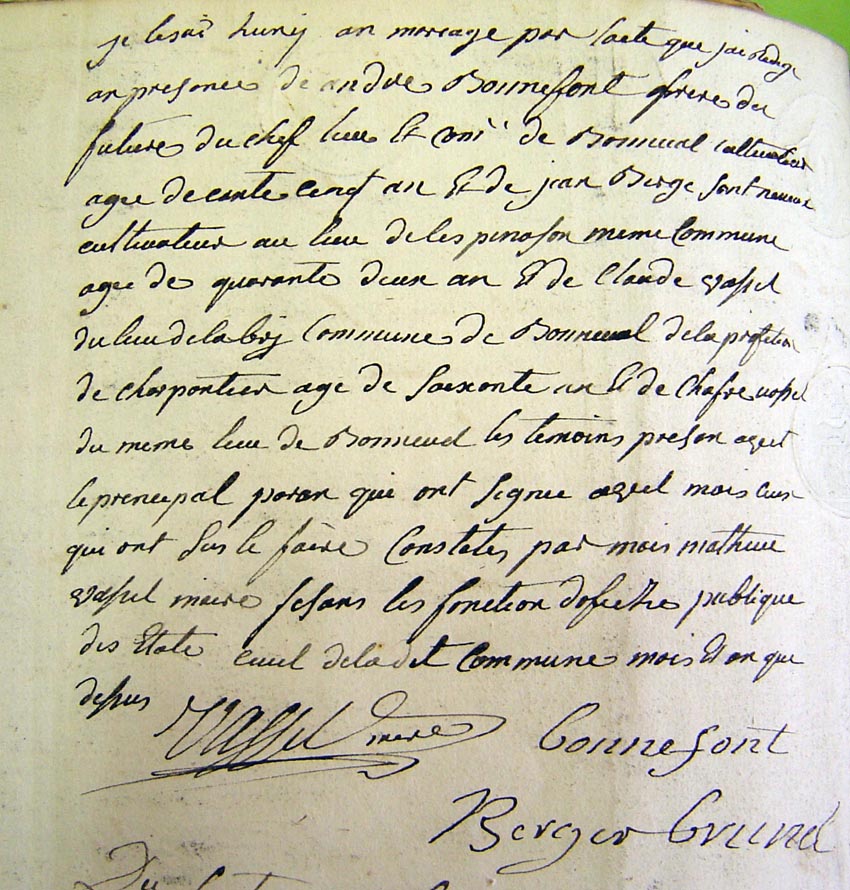 je les ai huny an mariage par lacte que jai redige
an presence de andre Bonnefont frere du
future du chef lieu Et comē de Bonneval cultivateur
agee de cante cinq an Et de jean Berge
cultivateur au lieu de les pinason meme Commune
agee de quarante deux an Et de Claude vassel
du lieu de la Commune de Bonneval de la profetion
de charpontier age de soixonte an Et de Chafre vassel
du meme lieu de Bonneval les temoins preson
le prencipal paran qui ont signee avec mois ceux
qui ont sus le faire Constates par mois mathieu
vassel maire fesans les fonction publique
des Etate civil de la dit Commune mois Et an que
dessus
VASSel mere Bonnefont
Berger Brund
Du